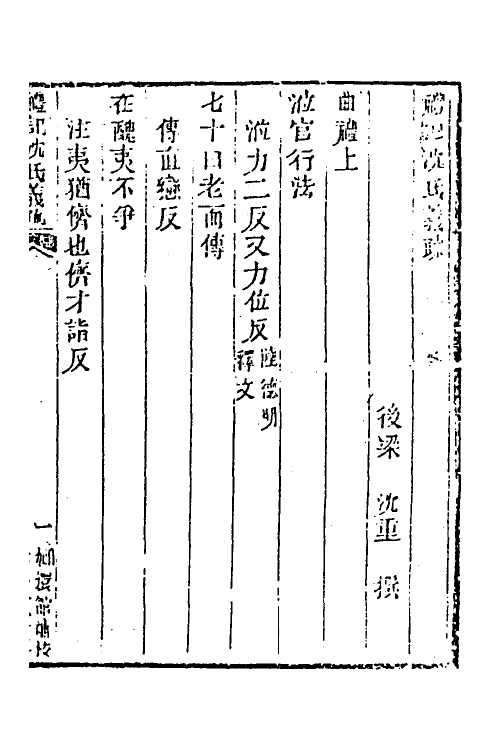 禮記沈氏義疏
後梁 沈重 撰
曲禮上
涖官行法
涖力二反又力位反陸德明釋文
七十曰老而傳
傳直戀反
在醜夷不爭
注夷猶儕也儕才詣反
禮記沈氏義疏
一 嫏嬛館補校